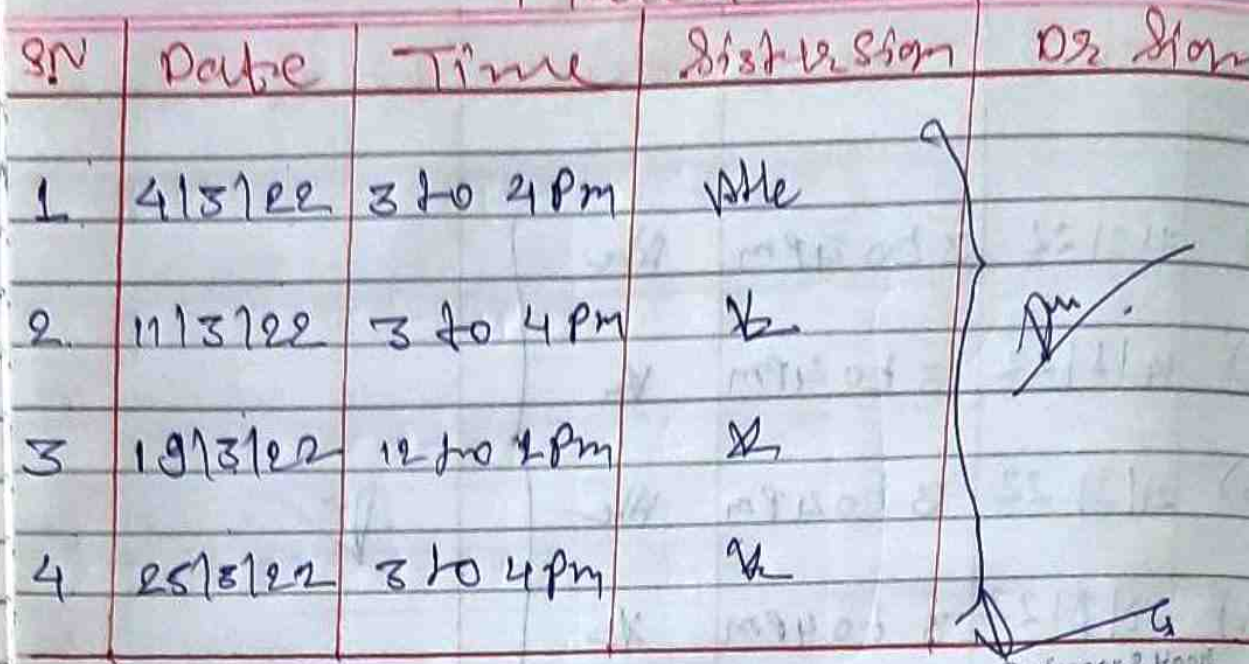 SN Date Time Sister Sign DR Sign
1 4/3/22 3 to 4 Pm
2. 11/3/22 3 to 4 Pm
3 19/3/22 12 to 1 Pm
4 25/3/22 3 to 4 Pm